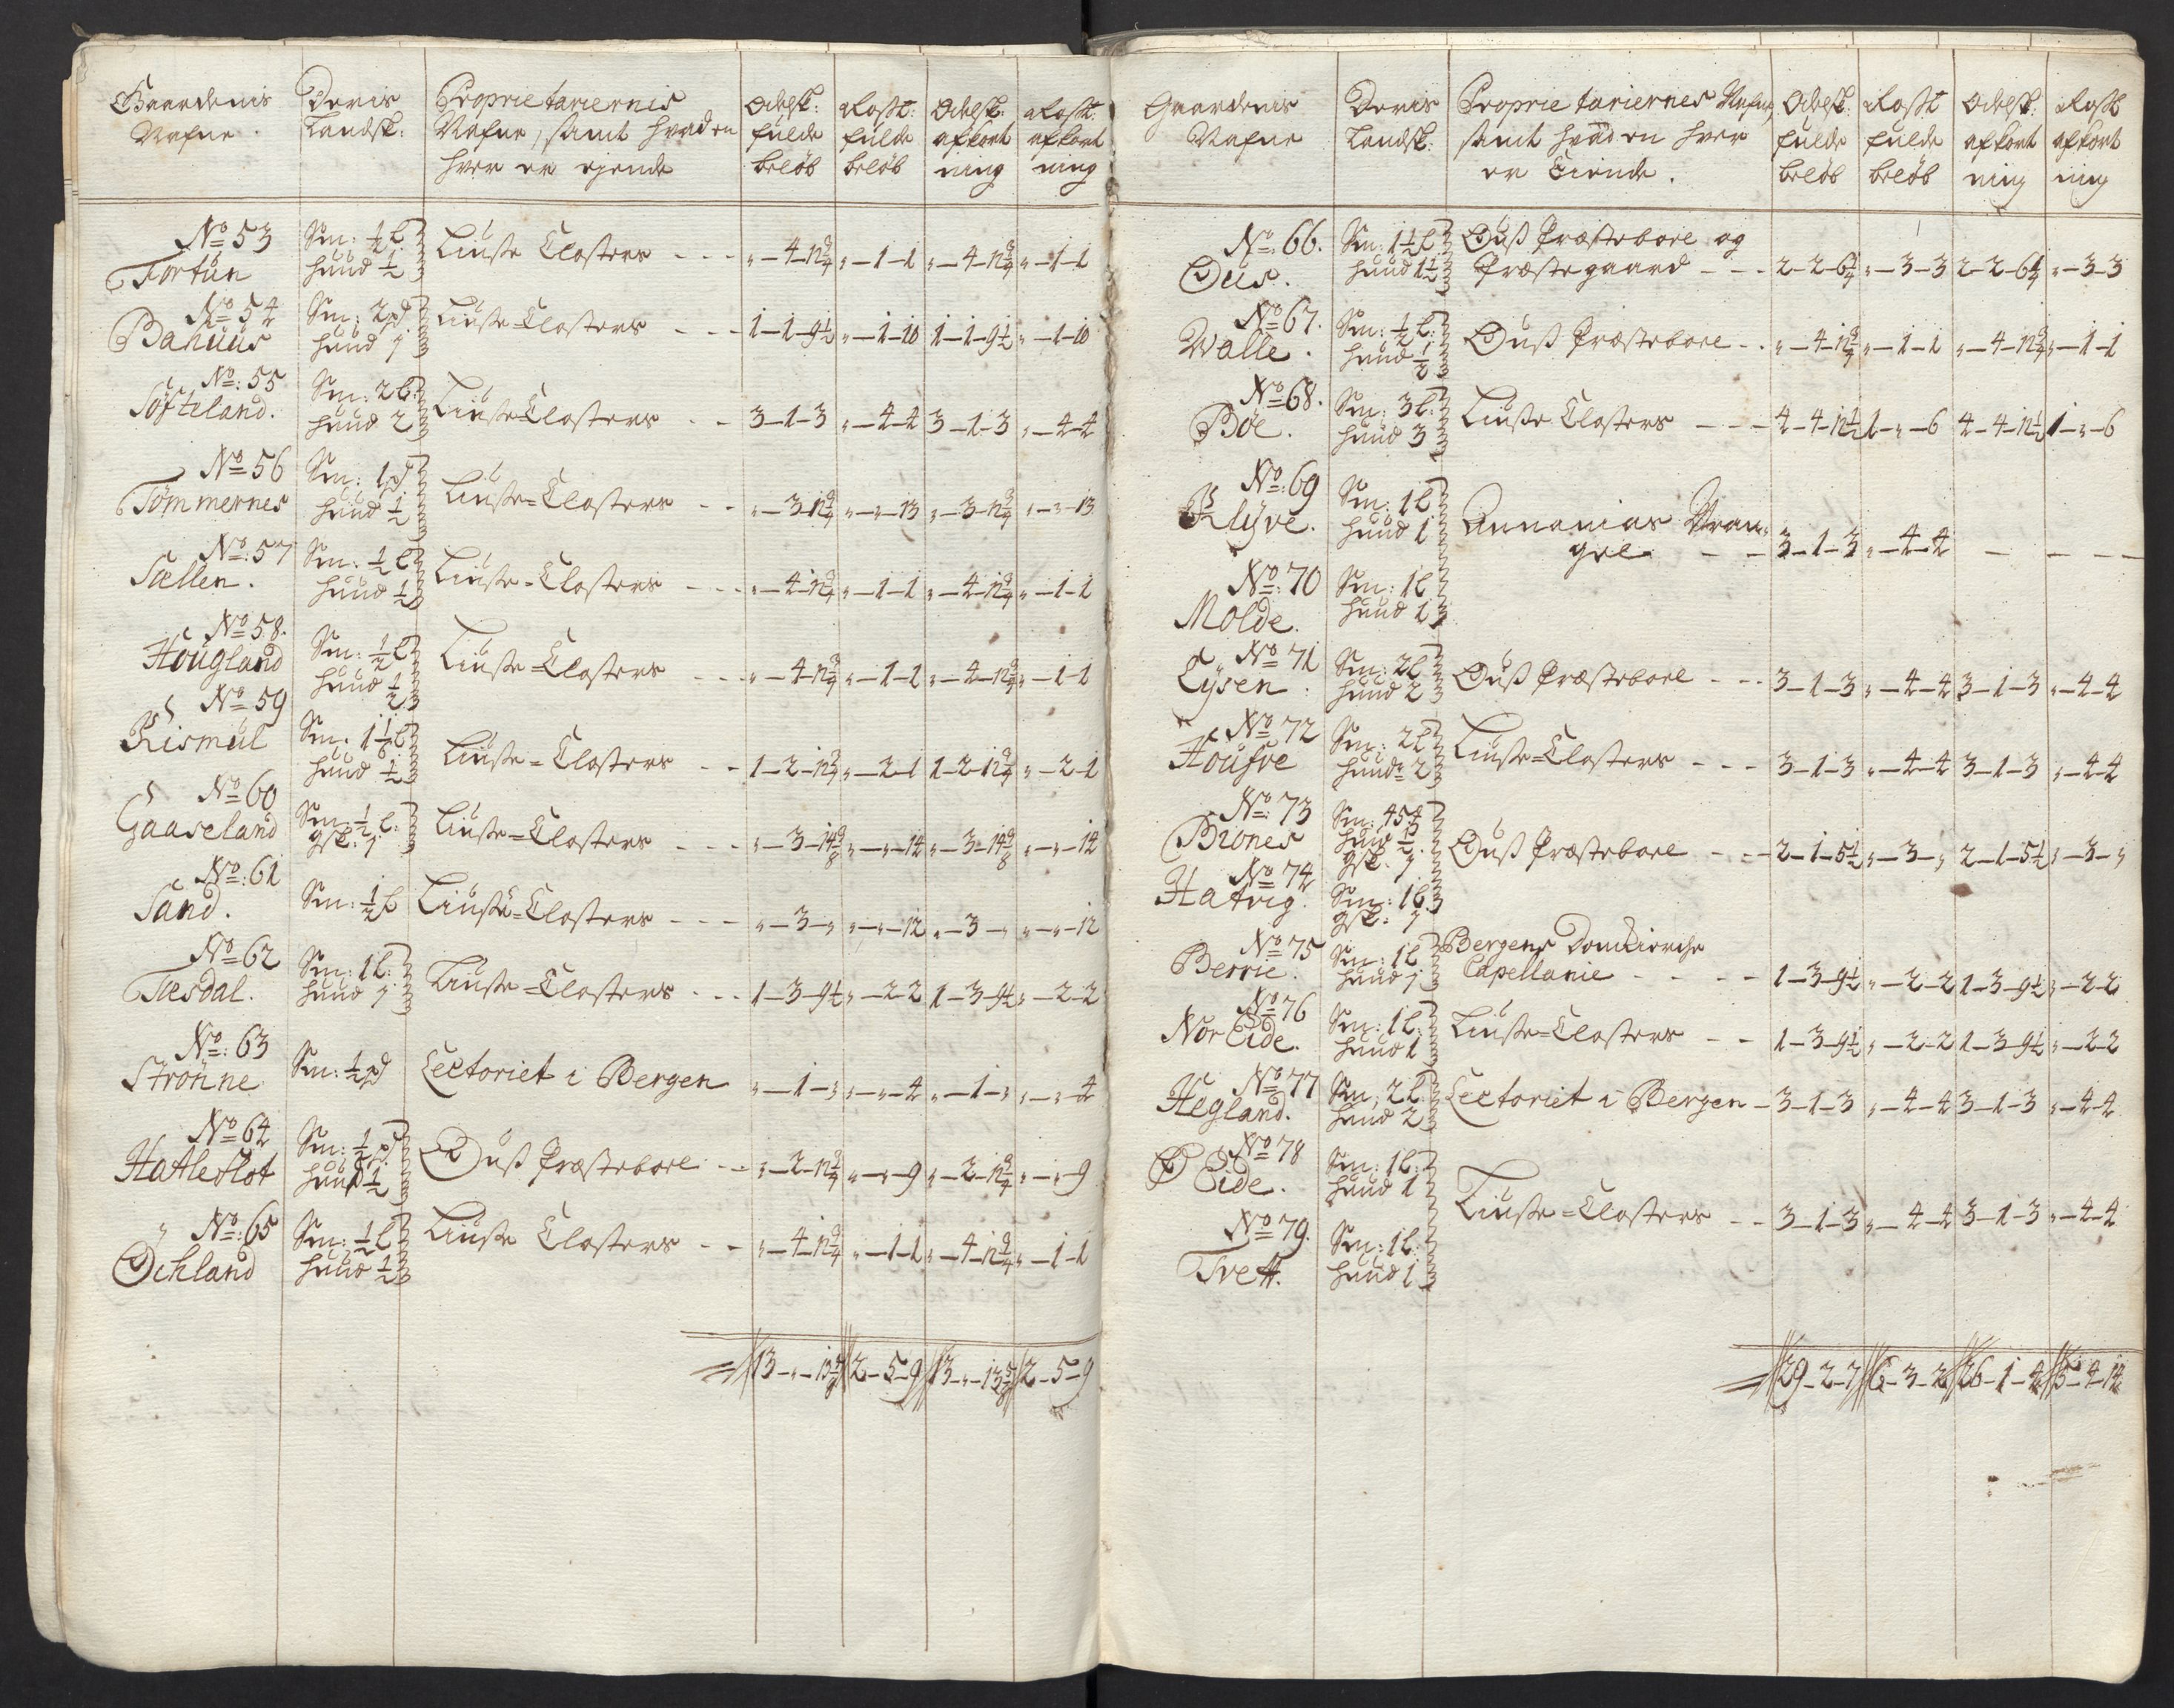 Gaardenis Nafne. | Deris Landsk: | Proprietariernis Nafne, samt hvad en hver er ejende | Odelsk: fulde beløb | Rosst: fulde beløb | Odelsk: afkortning | Rosst: afkortning
No 53 Fortün | Sm: ½ l hüud ½ | Liuße Closters | „-4-12 | „-1-1 | „-4-12 | „-1-1
No 54 Bahuus | Sm: 2 pd hüud 1 | Liuße=Closters | 1-1-9½ | „-1-10 | 1-1-9½ | „-1-10
No: 55 Söfteland. | Sm: 2 l: hüud 2 | Liuße=Closters | 3-1-3 | „-4-4 | 3-1-3 | „-4-4
No 56 Tömmernes | Sm: 1 pd hüud ½ | Liuße=Closters | „-3-12 | „-„-13 | „-3-12 | „-„-13
No: 57 Sællen. | Sm: ½ l hüud ½ | Liuße=Closters | „-4-12 | „-1-1 | „-4-12 | „-1-1
No 58. Hougland | Sm: ½ l hüud ½ | Liuße=Closters | „-4-12 | „-1-1 | „-4-12 | „-1-1
No 59 Rismül | Sm: 1 l hüud ½ | Liuße=Closters | 1-2-12 | „-2-1 | 1-2-12 | „-2-1
No 60 Gaaseland | Sm: ½ l: gsk: 1 | Liuße=Closters | „-3-14 | „-„-14 | „-3-14 | „-„-14
No: 61 Sand. | Sm: ½ l | Liuße=Closters | „-3-„ | „-„-12 | „-3-„ | „-„-12
No 62 Tæsdal. | Sm: 1 l: hüud 1 | Liuße=Closters | 1-3-9½ | „-2-2 | 1-3-9½ | „-2-2
No: 63 Strönne | Sm: ½ pd | Lectoriet i Bergen | „-1-„ | „-„-4 | „-1-„ | „-„-4
No 64 Hatleslot | Sm: ½ pd hüud ½ | Ouß Præstebole | „-2-12 | „-„-9 | „-2-12 | „-„-9
No: 65 Öchland | Sm: ½ l hüud ½ | Liuße Closters | „-4-12 | „-1-1 | „-4-12 | „-1-1
13-„-13 | 2-5-9 | 13-„-13 | 2-5-9
Gaardenis Nafne | Deris Landsk: | Proprietariernes Nafne, samt hvad en hver er Eiende. | Odelsk: fulde beløb | Rosst fulde beløb | Odelsk: afkortning | Rosst afkortning
No 66. Ous. | Sm: 1½ l hüud 1½ | Ouß Præstebole og Præstegaard | 2-2-6 | „-3-3 | 2-2-6 | „-3-3
No 67. Walle. | Sm: ½ l: hüud ½ | Ouß Præstebole | „-4-12 | „-1-1 | „-4-12 | „-1-1
No 68. Böe. | Sm: 3 l: hüud 3 | Liuße Closters | 4-4-12½ | 1-„-6 | 4-4-12½ | 1-„-6
No: 69 Klyve. | Sm: 1 l hüud 1 | Annanias Vrangel | 3-1-3 | „-4-4 | - | -
No: 70 Molde. | Sm: 1 l hüud 1
No 71 Lysen. | Sm: 2 l hüud 2 | Ouß Præstebole | 3-1-3 | „-4-4 | 3-1-3 | „-4-4
No 72 Houfve | Sm: 2 l hüud: 2 | Liuße=Closters | 3-1-3 | „-4-4 | 3-1-3 | „-4-4
No: 73 Biönes | hüud ½ gsk: 1 | Ouß Præstebole | 2-1-5½ | „-3-„ | 2-1-5½ | „-3-„
No 74 Hatvig. | Sm: 1 l gsk: 1
No 75 Berrie. | Sm: 1 l hüud 1 | Bergens Domkirche Capellanie | 1-3-9½ | „-2-2 | 1-3-9½ | „-2-2
No 76 NorEide. | Sm: 1 l: hüud 1 | Liuße=Closters | 1-3-9½ | „-2-2 | 1-3-9½ | „-2-2
No 77 Hegland. | Sm: 2 l hüud 2 | Lectoriet i Bergen | 3-1-3 | „-4-4 | 3-1-3 | „-4-4
No 78 Ø Eide. | Sm: 1 l: hüud 1 | Liuße=Closters | 3-1-3 | „-4-4 | 3-1-3 | „-4-4
No 79. Tvett. | Sm: 1 l: hüud 1
29-2-7 | 6-3-2 | 26-1-4 | 5-4-14